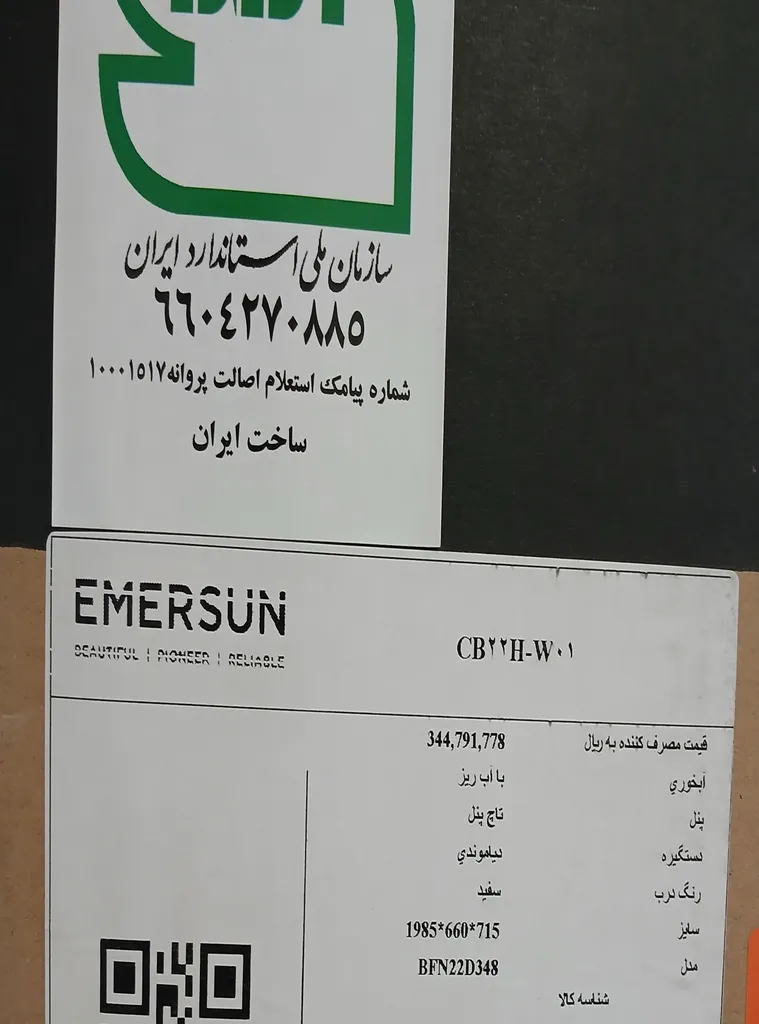 سازمان ملی استاندارد ایران
٦٦٠٤٢٧٠٨٨٥
شماره پیامک استعلام اصالت پروانه ١٠٠٠١٥١٧
ساخت ایران
EMERSUN
BEAUTIFUL | PIONEER | RELIABLE
CB٢٢H-W٠١
قیمت مصرف کننده به ریال 344,791,778
آبخوري با آب ریز
پنل تاچ پنل
دستگیره دیاموندي
رنگ درب سفید
سایز 1985*660*715
مدل BFN22D348
شناسه کالا